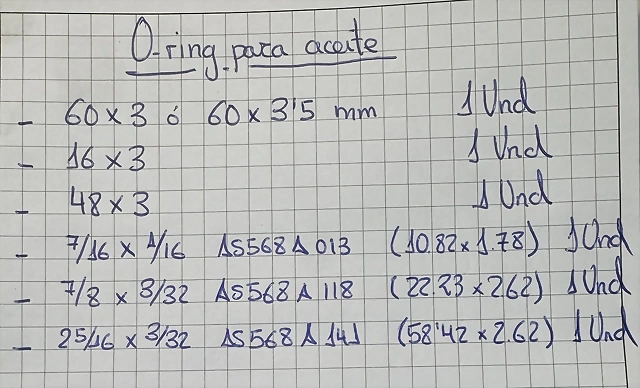 O-ring para aceite
- 60 x 3 ó 60 x 3'5 mm 1 Und
- 16 x 3 1 Und
- 48 x 3 1 Und
- 7/16 x 1/16 AS568A 013 (10.82 x 1.78) 1 Und
- 7/8 x 3/32 AS568A 118 (22.23 x 2.62) 1 Und
- 25/16 x 3/32 AS568A 141 (58'42 x 2.62) 1 Und